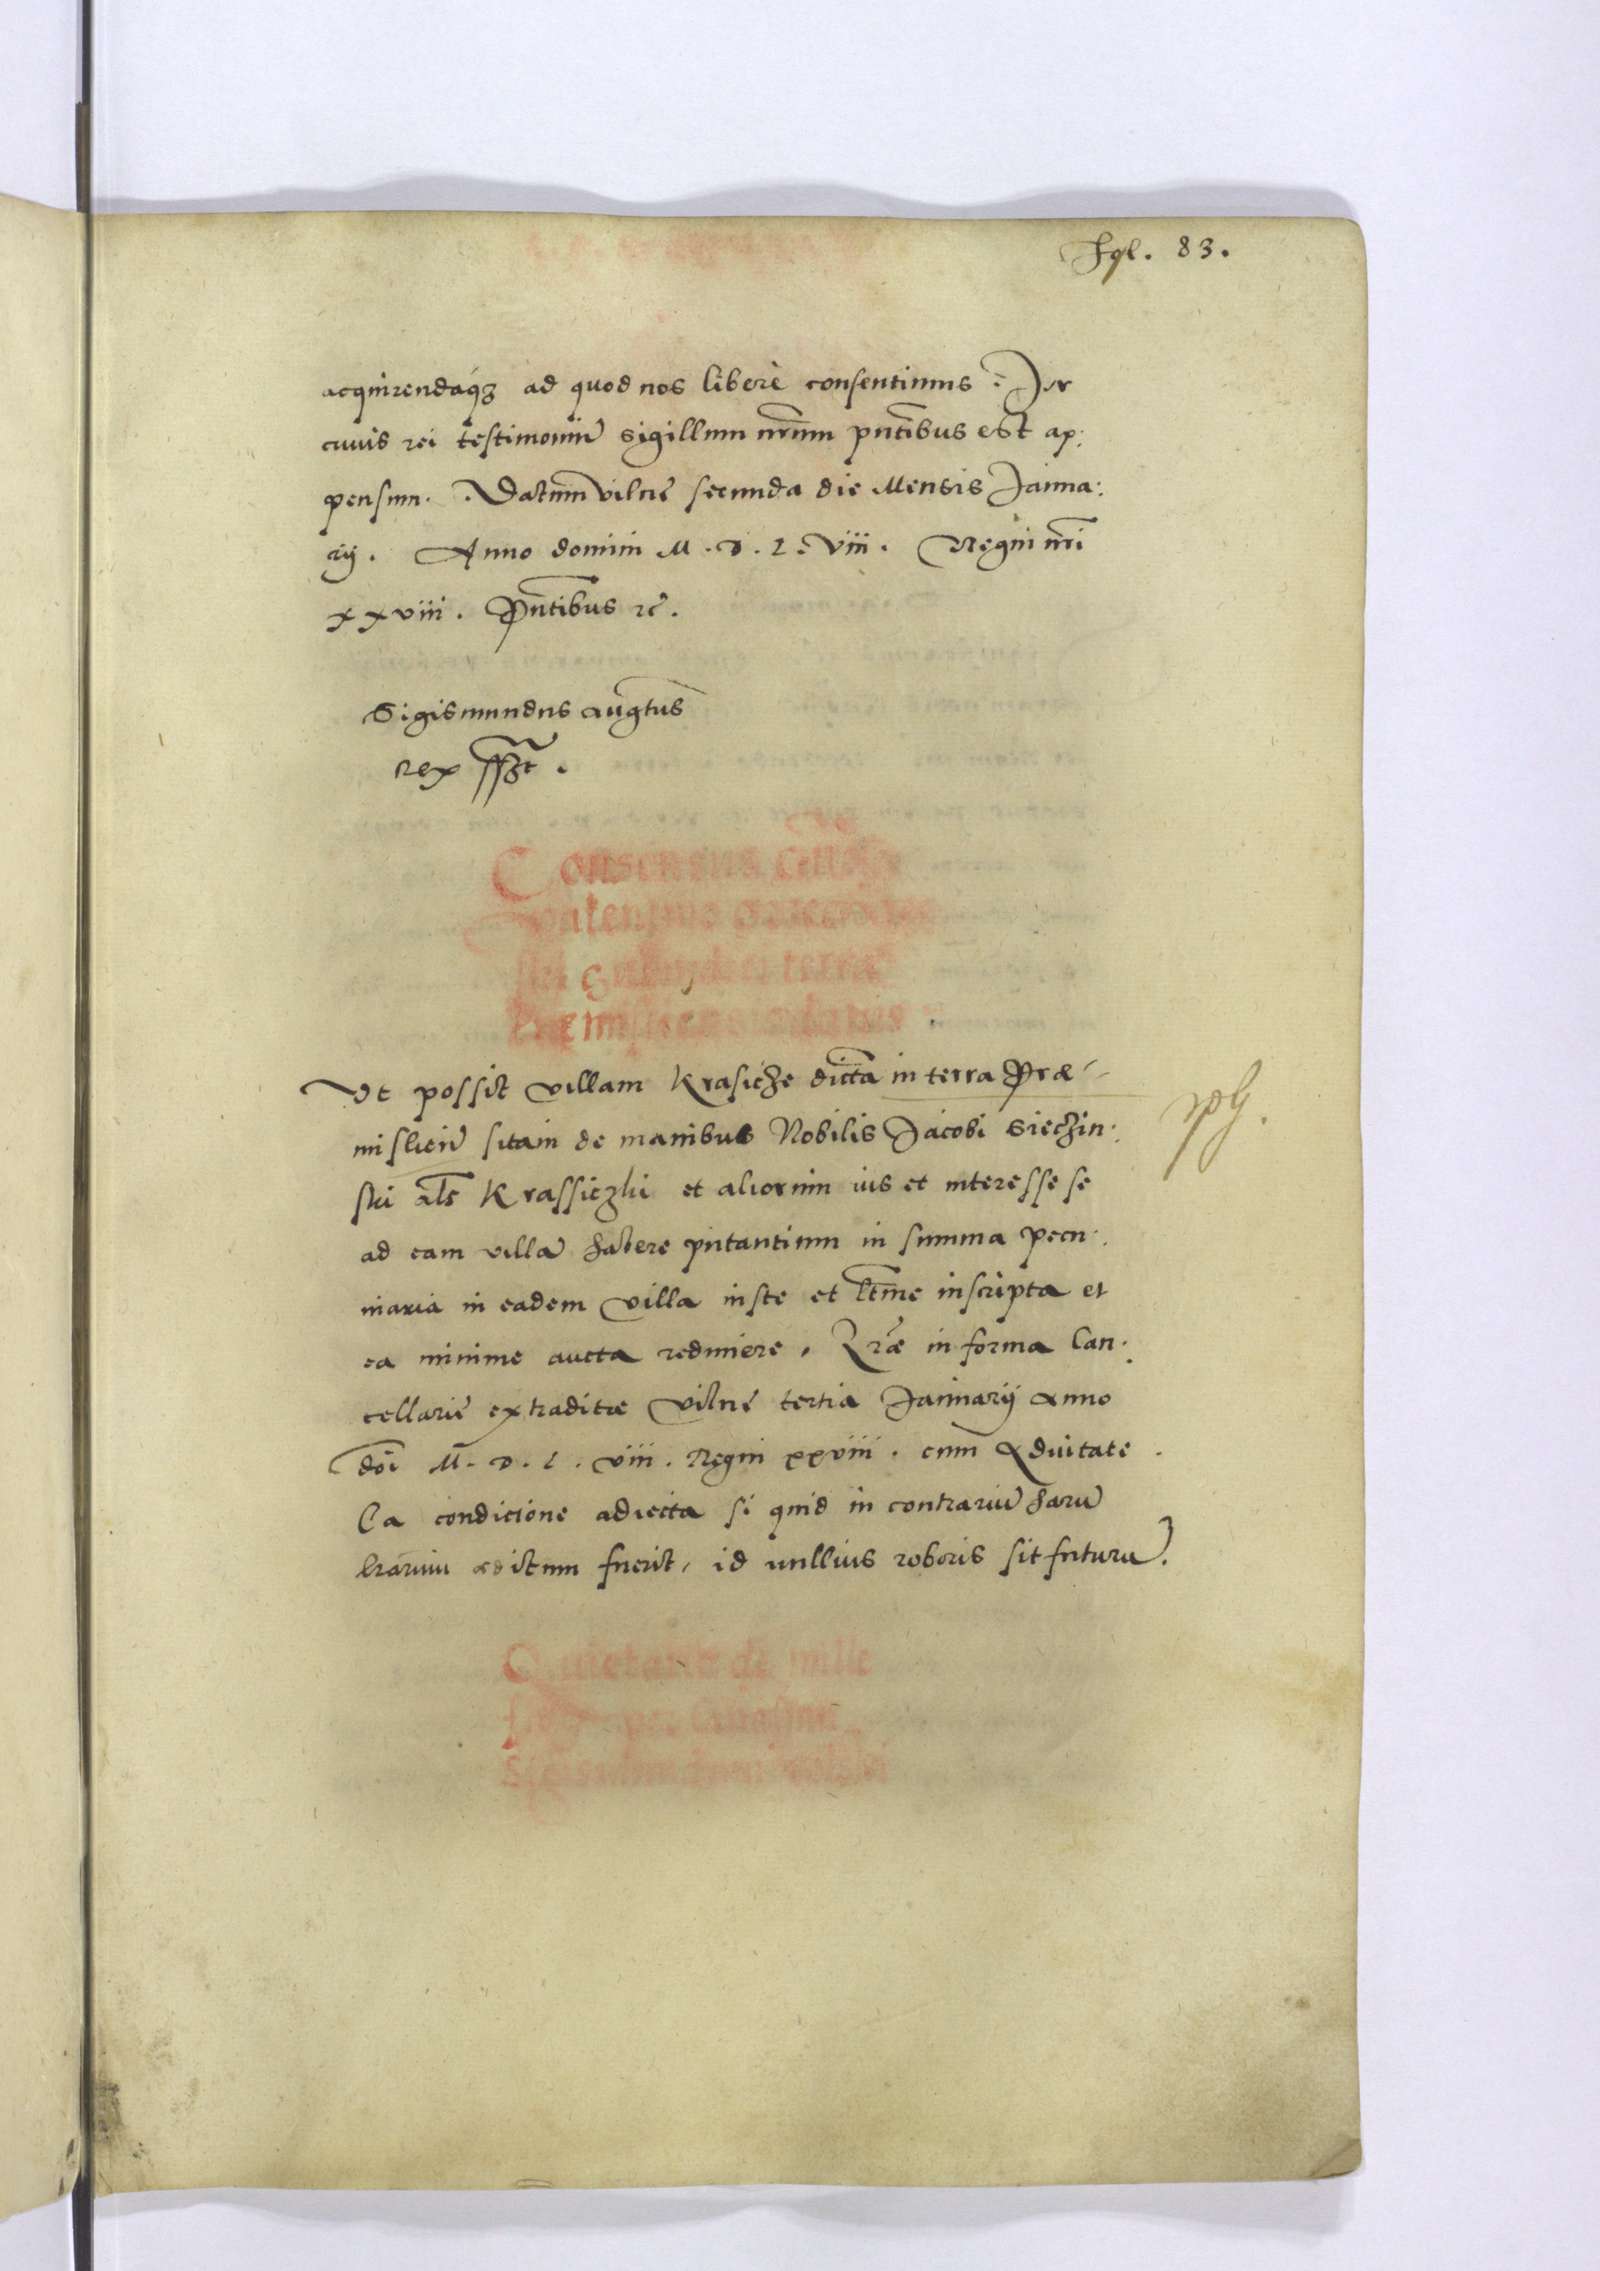 Fol. 83.
acquirendaqꝫ ad quod nos liberè consentimus. In
cuius rei testimoniũ sigillum nr̃um pñtibus est ap:
pensum. Datum Vilnę secunda die Mensis Janua:
rij. Anno domini M. D. L. Viii. Regni nr̃i
xxviii. Pñtibus ꝛc̃.
Sigismundus aug̃tus
Rex sszt.
Consensus
Ut possit villam Krasicze dictã in terra Præ-
misliẽ sitam de manibus Nobilis Jacobi Sieczin:
ski al̃s Krassiczki et aliorum ius et interesse se
ad eam villã habere putantium in summa pecu:
niaria in eadem villa iuste et lt̃me inscripta et
ea minime aucta redimere. Lr̃æ in forma Can:
cellarię extraditæ Vilnę tertia Januarij Anno
doĩ M. D. L. viii. Regni xxviii. cum
Ea condicione adiecta si quid in contrariũ harũ
lr̃arum editum fuerit, id nullius roboris sit futurũ.
Quietatio de mille
per